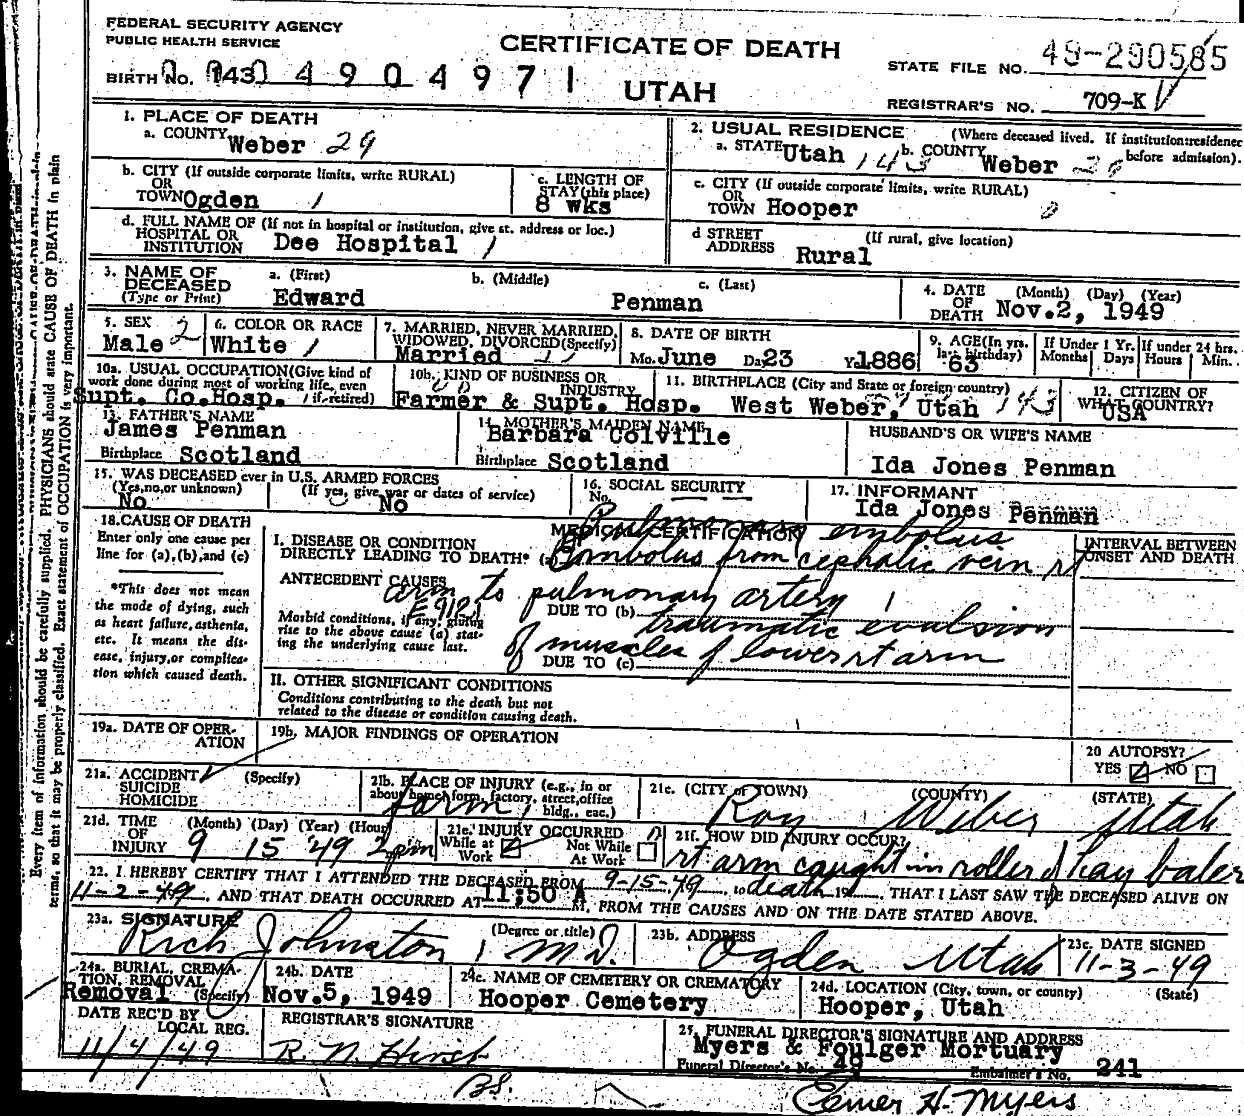 FEDERAL SECURITY AGENCY
PUBLIC HEALTH SERVICE
CERTIFICATE OF DEATH
STATE FILE NO. 49-290585
BIRTH NO. 143 4904971
UTAH
REGISTRAR'S NO. 709-K
1. PLACE OF DEATH
a. COUNTY Weber 29
2. USUAL RESIDENCE (Where deceased lived. If institution: residence before admission).
a. STATE Utah 143 b. COUNTY Weber
b. CITY (If outside corporate limits, write RURAL)
OR
TOWN Ogden 1
c. LENGTH OF
STAY (this place)
8 wks
c. CITY (If outside corporate limits, write RURAL)
OR
TOWN Hooper
d. FULL NAME OF (If not in hospital or institution, give st. address or loc.)
HOSPITAL OR
INSTITUTION Dee Hospital 1
d STREET (If rural, give location)
ADDRESS Rural
3. NAME OF
DECEASED
(Type or Print)
a. (First) Edward
b. (Middle)
c. (Last) Penman
4. DATE (Month) (Day) (Year)
OF
DEATH Nov.2, 1949
5. SEX 2
Male
6. COLOR OR RACE
White 1
7. MARRIED, NEVER MARRIED,
WIDOWED, DIVORCED (Specify)
Married
8. DATE OF BIRTH
Mo. June Da 23 Y 1886
9. AGE (In yrs.
last birthday)
63
If Under 1 Yr.
Months Days
If under 24 hrs.
Hours Min.
10a. USUAL OCCUPATION (Give kind of
work done during most of working life, even
if retired)
Supt. Co.Hosp.
10b. KIND OF BUSINESS OR
INDUSTRY
Farmer & Supt. Hosp.
11. BIRTHPLACE (City and State or foreign country)
West Weber, Utah 143
12. CITIZEN OF
WHAT COUNTRY?
USA
13. FATHER'S NAME
James Penman
Birthplace Scotland
14. MOTHER'S MAIDEN NAME
Barbara Colville
Birthplace Scotland
HUSBAND'S OR WIFE'S NAME
Ida Jones Penman
15. WAS DECEASED ever in U.S. ARMED FORCES
(Yes, no, or unknown) (If yes, give war or dates of service)
No No
16. SOCIAL SECURITY
No.
17. INFORMANT
Ida Jones Penman
18. CAUSE OF DEATH
Enter only one cause per
line for (a), (b), and (c)
*This does not mean
the mode of dying, such
as heart failure, asthenia,
etc. It means the dis-
ease, injury, or complica-
tion which caused death.
MEDICAL CERTIFICATION
INTERVAL BETWEEN
ONSET AND DEATH
Pulmonary embolus
I. DISEASE OR CONDITION
DIRECTLY LEADING TO DEATH* (a) Embolus from cephalic vein rt
ANTECEDENT CAUSES arm to pulmonary artery 1
E 912
Morbid conditions, if any, giving
rise to the above cause (a) stat-
ing the underlying cause last.
DUE TO (b) traumatic evulsion
of muscles of lower rt arm
DUE TO (c)
II. OTHER SIGNIFICANT CONDITIONS
Conditions contributing to the death but not
related to the disease or condition causing death.
19a. DATE OF OPER-
ATION
19b. MAJOR FINDINGS OF OPERATION
20 AUTOPSY?
YES NO
21a. ACCIDENT (Specify)
SUICIDE
HOMICIDE
21b. PLACE OF INJURY (e.g., in or
about home, farm, factory, street, office
bldg., eac.)
farm
21c. (CITY or TOWN) (COUNTY) (STATE)
Roy Weber Utah
21d. TIME (Month) (Day) (Year) (Hour)
OF
INJURY 9 15 49 2pm
21e. INJURY OCCURRED
While at Not While
Work At Work
21f. HOW DID INJURY OCCUR?
rt arm caught in roller of hay baler
22. I HEREBY CERTIFY THAT I ATTENDED THE DECEASED FROM 9-15-49, to death 19, THAT I LAST SAW THE DECEASED ALIVE ON
11-2-49, AND THAT DEATH OCCURRED AT 11:50 A M, FROM THE CAUSES AND ON THE DATE STATED ABOVE.
23a. SIGNATURE (Degree or title)
Rich Johnston M.D.
23b. ADDRESS
Ogden Utah
23c. DATE SIGNED
11-3-49
24a. BURIAL, CREMA-
TION, REMOVAL
Removal (Specify)
24b. DATE
Nov.5, 1949
24c. NAME OF CEMETERY OR CREMATORY
Hooper Cemetery
24d. LOCATION (City, town, or county) (State)
Hooper, Utah
DATE REC'D BY
LOCAL REG.
11/4/49
REGISTRAR'S SIGNATURE
R. N. Hirst
BS.
25. FUNERAL DIRECTOR'S SIGNATURE AND ADDRESS
Myers & Foulger Mortuary
Funeral Director's No. 49 Embalmer's No. 241
Elmer H. Myers
Every item of information should be carefully supplied. PHYSICIANS should state CAUSE OF DEATH in plain
terms, so that it may be properly classified. Exact statement of OCCUPATION is very important.